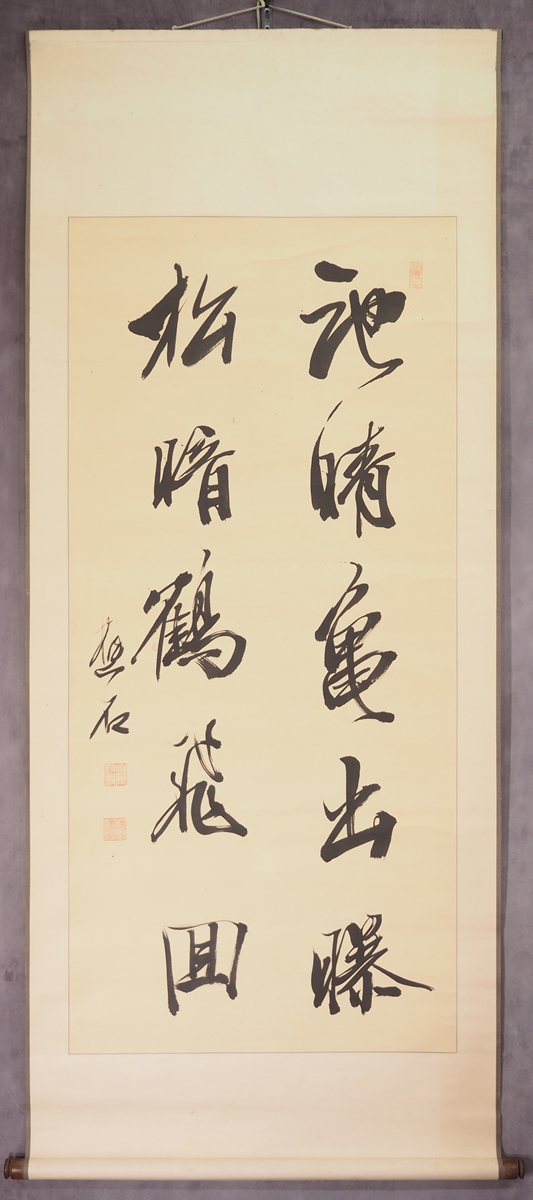 池晴亀出曝
松暗鶴飛回
石